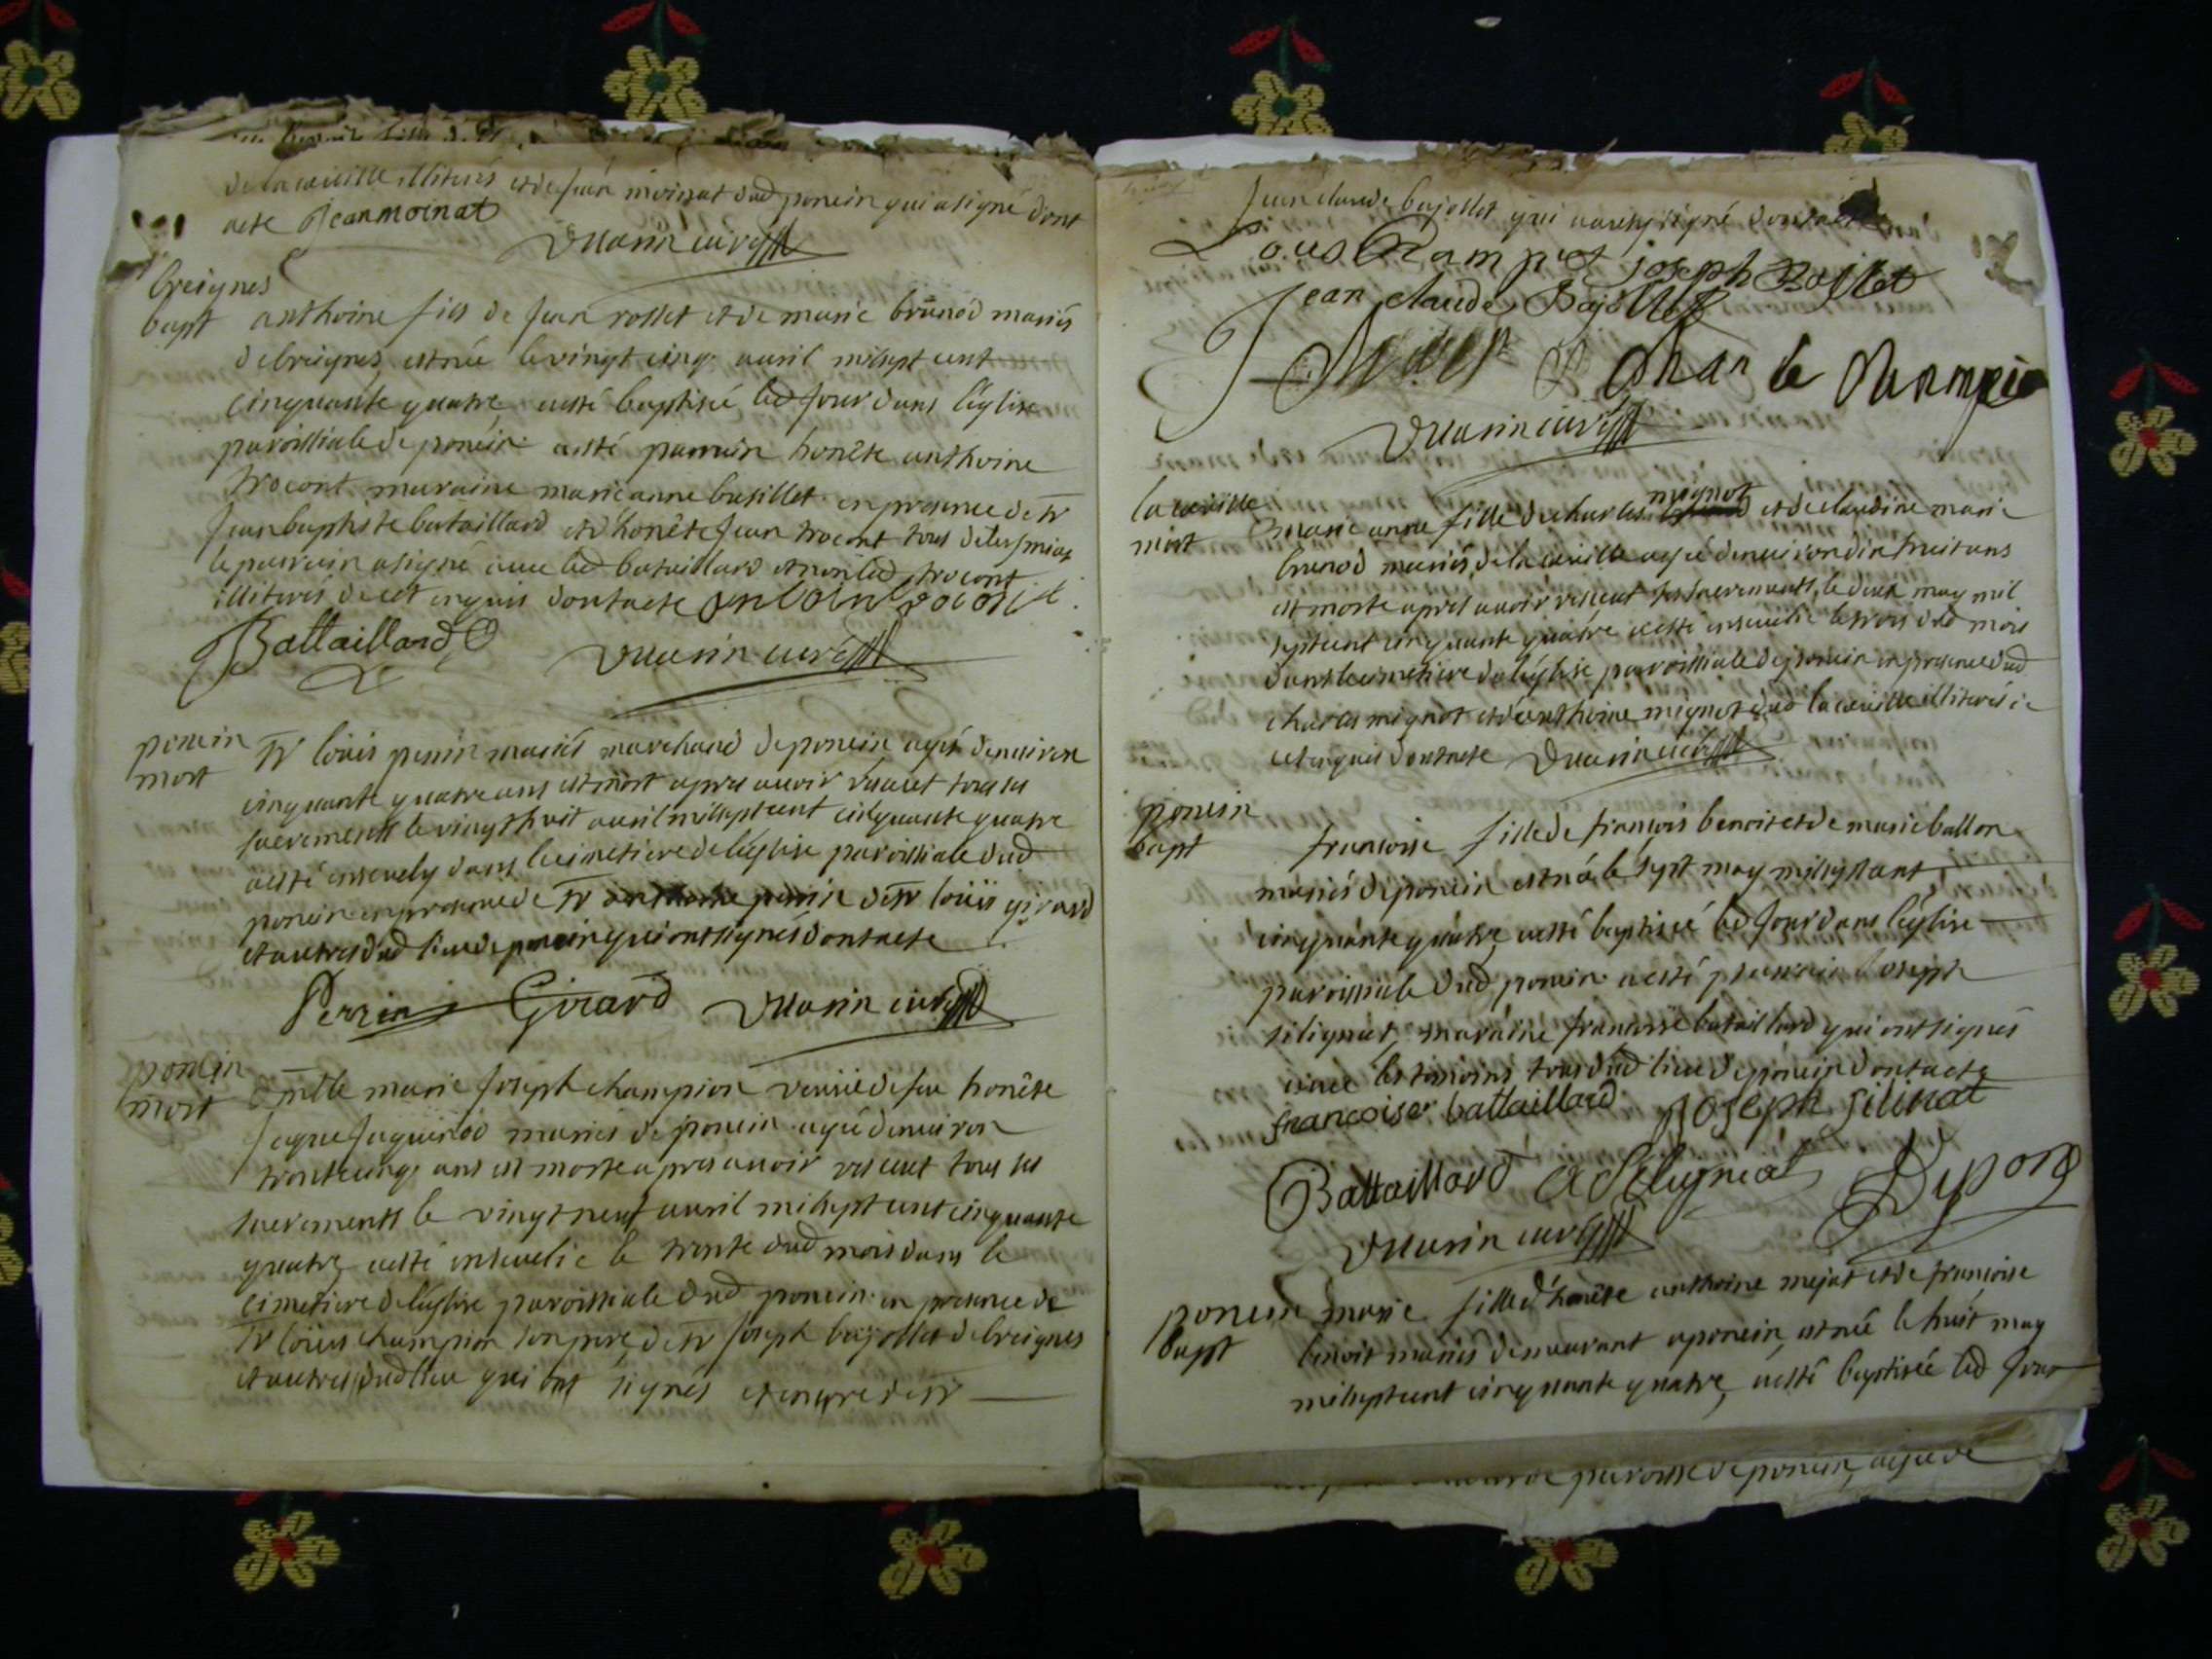 de la cueille illiterés et de jean moinat dud poncin qui a signé dont
acte Jean moinat
Vuarin curé
breignes
bapt
anthoine fils de jean rosset et de marie brunod mariés
de breignes est née le vingt cinq avril mil sept cent
cinquante quatre a esté baptisée led jour dans l'église
paroissiale de poncin a esté parrain honête anthoine
trocont maraine marie anne busillet en presence de sr
jean baptiste bataillard et d'honête jean trocont tous
le parrain a signé avec led bataillard et non led trocont
illiterés de ce enquis dont acte
Battaillard
Vuarin curé
poncin
mort
sr loüis perrin mariés marchand de poncin agé d'environ
cinquante quatre ans est mort apres avoir receut tous les
sacrements le vingt huit avril mil sept cent cinquante quatre
a esté ensevely dans le cimetiere de l'église paroissiale dud
poncin en presence de sr de sr loüis girard
et autres dud lieu de poncin qui ont signés dont acte
Perrin Girard Vuarin curé
poncin
mort
marie joseph champion veuve de feu honête
jaque juquinod mariés de poncin agée d'environ
trente cinq ans est morte apres avoir receut tous les
sacrements le vingt neuf avril mil sept cent cinquante
quatre a esté ensevelie le trente dud mois dans le
cimetiere de l'église paroissiale dud poncin en presence de
sr loüis champion son pere de sr joseph bajollet de breignes
et autres dud lieu qui ont signés et encore de sr
jean claude bajollet qui aussy signé dont acte
Loüis Champion joseph Bajollet
jean claude Bajollet
Vuarin curé
la cueille
mort
marie anne fille de charles mignot et de claudine marie
brunod mariés de la cueille agée d'environ dix huit ans
est morte apres avoir receut les sacrements le deux may mil
sept cent cinquante quatre a esté ensevelie le trois dud mois
dans le cimetiere de l'église paroissiale de poncin en presence dud
charles mignot et d'anthoine mignot dud la cueille illiterés de
ce enquis dont acte Vuarin curé
poncin
bapt
francoise fille de francois benoit et de marie ballon
mariés de poncin est née le sept may mil sept cent
cinquante quatre a esté baptisée led jour dans l'église
paroissiale dud poncin a esté parrain joseph
silignat, maraine francoise bataillard qui ont signés
avec les temoins tous dud lieu de poncin dont acte
francoise battaillard joseph silinat
Battaillard Silignat Dupong
Vuarin curé
poncin
bapt
marie fille d'honête anthoine mejat et de francoise
benoit mariés demeurant a poncin, est née le huit may
mil sept cent cinquante quatre, a esté baptisée led jour
paroisse de poncin, agée de